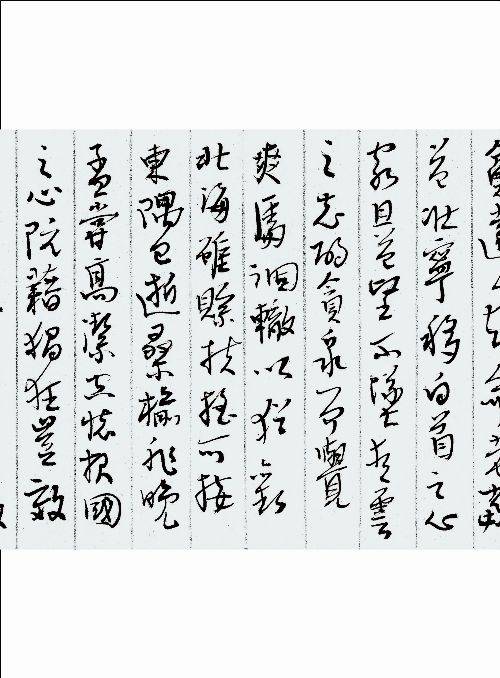 益壯寧移白首之心
窮且益堅不墜青雲
之志酌貪泉而覺
爽處涸轍以猶歡
北海雖賒扶搖可接
東隅已逝桑榆非晚
孟嘗高潔空懷報國
之心阮籍猖狂豈效